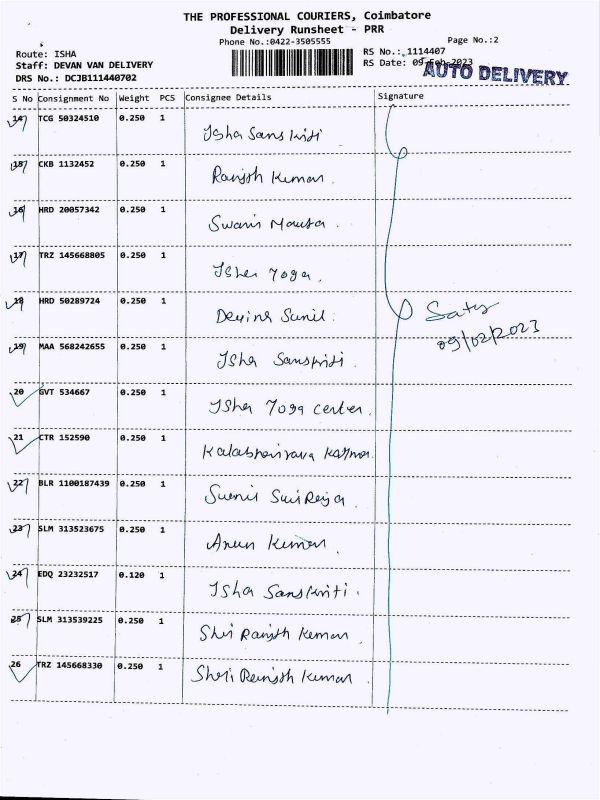 THE PROFESSIONAL COURIERS, Coimbatore
Delivery Runsheet - PRR
Phone No.:0422-3505555
Page No.:2
Route: ISHA
Staff: DEVAN VAN DELIVERY
DRS No.: DCJB111440702
RS No.: 1114407
RS Date: 09-Feb-2023
AUTO DELIVERY
S No Consignment No Weight PCS Consignee Details Signature
14 TCG 50324510 0.250 1 Isha Sanskriti
15 CKB 1132452 0.250 1 Ranjith Kumar.
16 HRD 20057342 0.250 1 Swami
17 TRZ 145668805 0.250 1 Isha Yoga.
18 HRD 50289724 0.250 1 Sunil.
19 MAA 568242655 0.250 1 Isha Sanskriti.
20 GVT 534667 0.250 1 Isha Yoga center.
21 CTR 152590 0.250 1 Kalabhairava
22 BLR 1100187439 0.250 1
23 SLM 313523675 0.250 1 Arun Kumar.
24 EDQ 23232517 0.120 1 Isha Sanskriti.
25 SLM 313539225 0.250 1 Shri Ranjith Kumar.
26 TRZ 145668330 0.250 1 Shri Ranjith Kumar.
Saty
09/02/2023